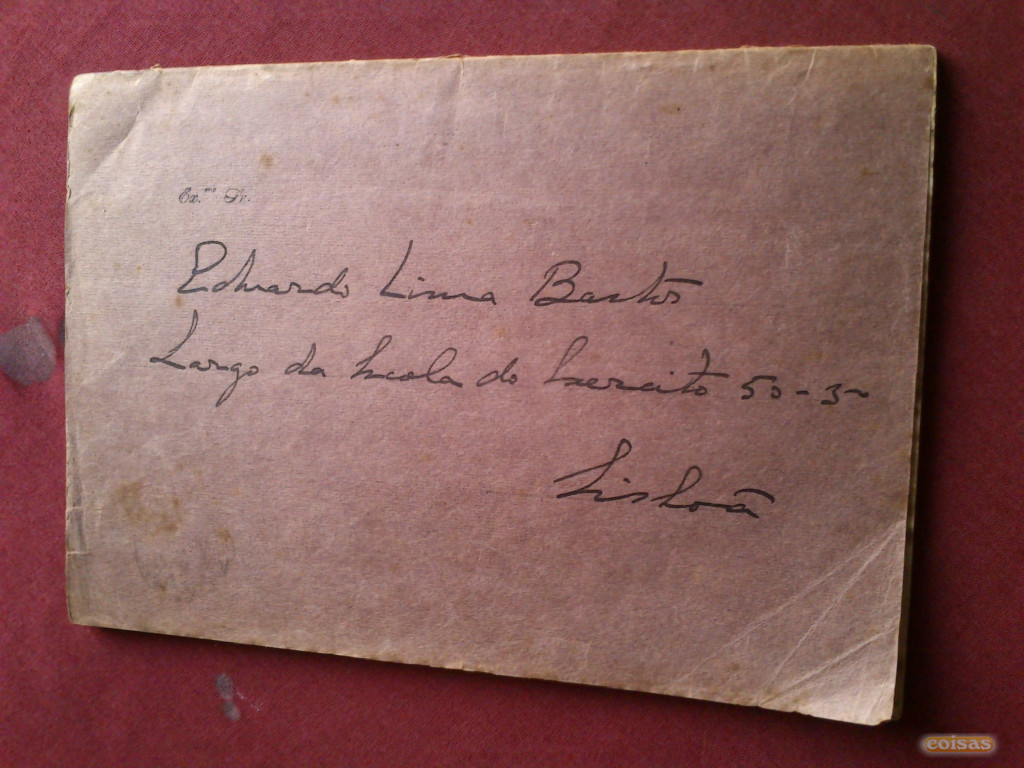 Ex.mo Sr.
Eduardo Lima Bastos
Largo da Escola do Exercito 50-3º
Lisboa
coisas